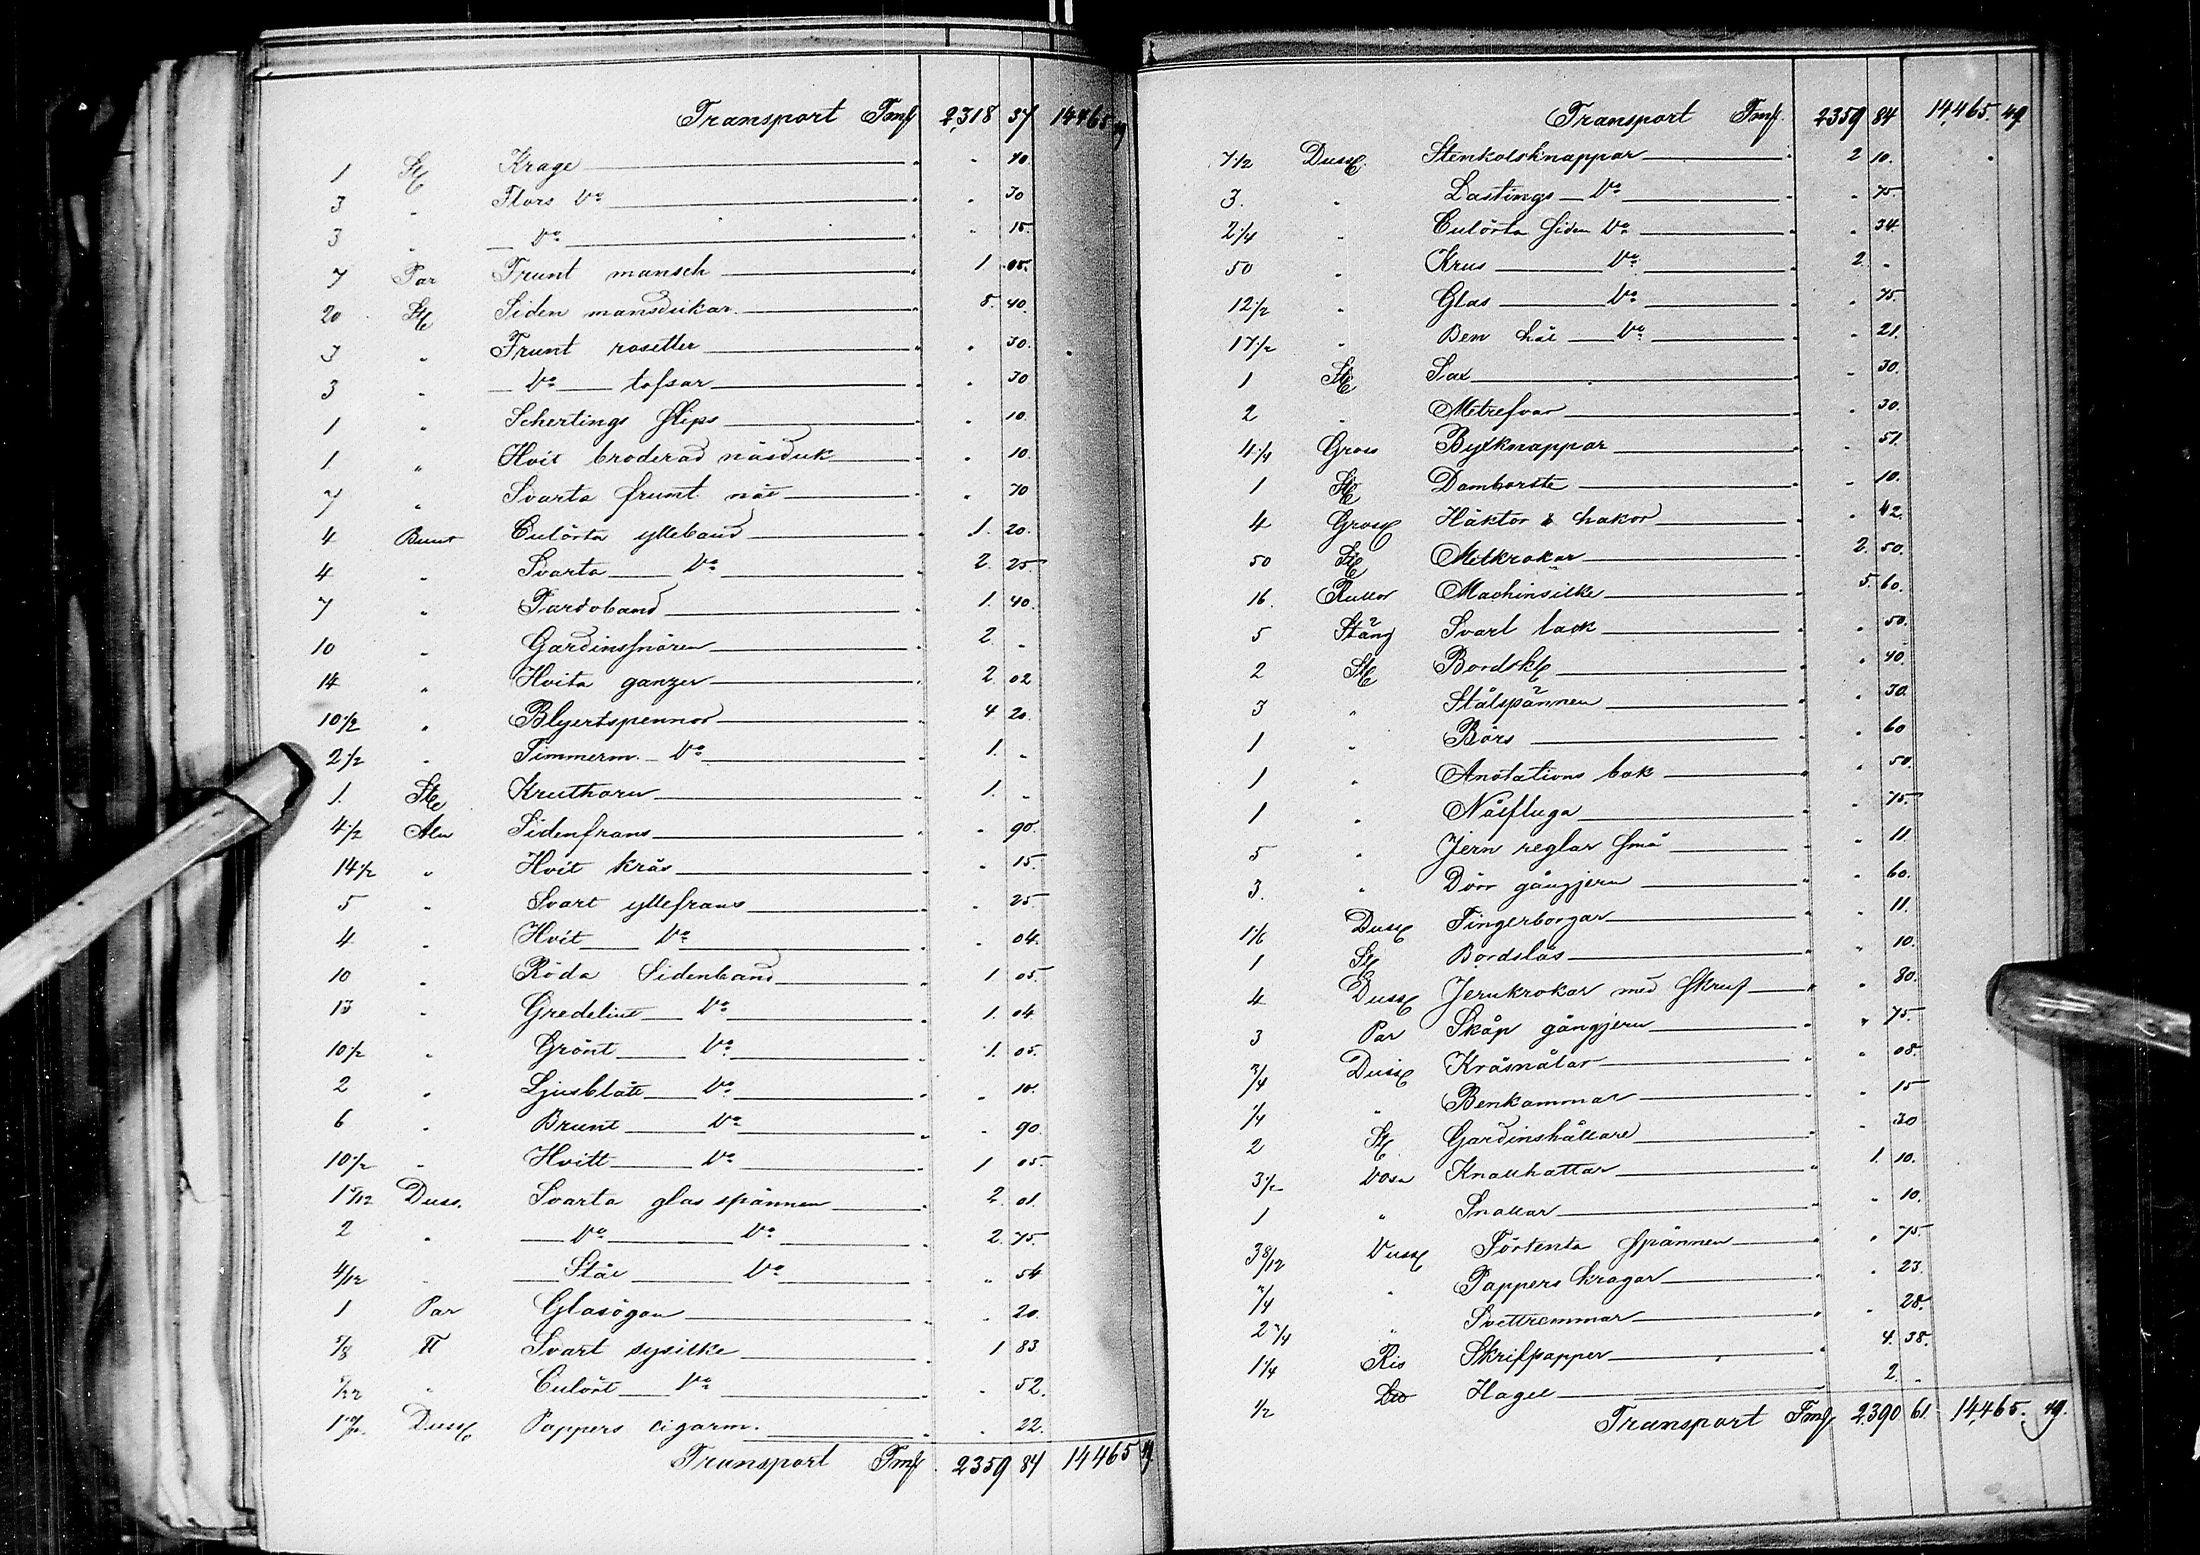 Transport Fmk 2,318 37 14465 49
1 St Krage " " 40
3 " Flors Do " " 30
3 " — Do " " 15
7 Par Frunt. mansch " 1 05
20 St Siden mansdukar " 5 40
3 " Frunt. rosetter " " 30
3 " — Do — tofsar " " 30
1 " Schertings slips " " 10
1 " Hvit broderad näsduk " " 10
7 " Svarta frunt. nät " " 70
4 Bunt Culörta ylleband " 1 20
4 " Svarta — Do " 2 25
7 " Pardoband " 1 40
10 " Gardinsnören " 2 "
14 " Hvita ganzer " 2 02
10 1/2 " Blyertspennor " 4 20
2 1/2 " Timmerm. — Do " 1 "
1 St Kruthorn " 1 "
4 1/2 Aln Sidenfrans " " 90
14 1/2 " Hvit krås " " 15
5 " Svart yllefrans " " 25
4 " Hvit — Do " " 04
10 " Röda Sidenband " 1 05
13 " Gredelint — Do " 1 04
10 1/2 " Grönt — Do " 1 05
2 " Ljusblått — Do " " 10
6 " Brunt — Do " " 90
10 1/2 " Hvitt — Do " 1 05
1 5/12 Duss. Svarta glas spännen " 2 01
2 " — Do — Do " 2 75
4/12 " — Stål — Do " " 54
1 Par Glasögon " " 20
Svart sysilke " 1 83
" Culört — Do " " 52
Duss Pappers cigarm. " " 22
Transport Fmk 2359 84 14465 49
Transport Fmk 2359 84 14,465 49
7 1/2 Duss Stenkolsknappar " 2 10
3 " Lastings — Do " " 75
2 1/4 " Culörta siden Do " " 34
50 " Krus — Do " 2 "
12 1/2 " Glas — Do " " 75
17 1/2 " Ben hål — Do " " 21
1 St Sax " " 30
2 " Metrefvar " " 30
4 1/4 Gross Byxknappar " " 51
1 St Damborste " " 10
4 Gross Häktor & hakor " " 42
50 St Metkrokar " 2 50
16 Rullor Machinsilke " 5 60
5 Stäng Svart lack " " 50
2 St Bordsk " " 40
3 " Stålspännen " " 30
1 " Börs " " 60
1 " Anotations bok " " 50
1 " Nålfluga " " 75
5 " Jern reglar små " " 11
3 " Dörr gångjern " " 60
1 1/6 Duss Fingerborgar " " 11
1 St Bordslås " " 10
4 Duss Jernkrokar med skruf " " 80
3 Par Skåp gångjern " " 75
3/4 Duss Kråsnålar " " 08
1/4 " Benkammar " " 15
2 St Gardinshållare " " 30
3 1/2 Dosa Knallhattar " 1 10
1 " Snallar " " 10
3 8/12 Duss Förtenta spännen " " 75
3/4 " Pappers kragar " " 23
2 3/4 " Svettremmar " " 28
1 1/4 Ris Skrifpapper " 4 38
1/2 Hagel 2 "
Transport Fmk 2390 61 14,465 49